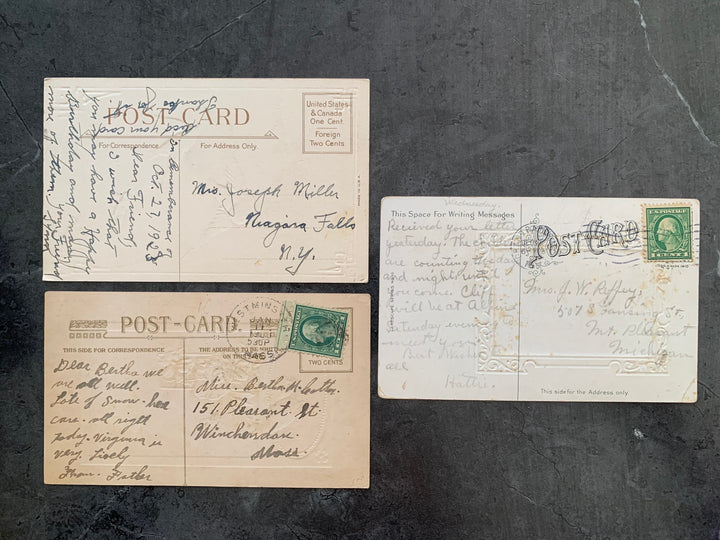 POST CARD
United States
& Canada
One Cent.
Foreign
Two Cents.
For Correspondence.
For Address Only.
In Remembrance of
Oct. 27, 1928
Dear Friend,
I wish that
you may have a Happy
Birthday and many
more of them.
Mrs. Joseph Miller
Niagara Falls
N.Y.
POST-CARD
THIS SIDE FOR CORRESPONDENCE
THE ADDRESS TO BE
ON THIS
TWO CENTS
JAN
11
530P
MASS
Dear Bertha we
are all well.
Lots of Snow. her
care. all right
today. Virginia is
very lively
From Father
Miss. Bertha M.
151. Pleasant St
Winchendon.
Mass.
Wednesday.
This Space For Writing Messages
POST CARD
U.S. POSTAGE
1 CENT 1
Received your letter
yesterday. The
are counting
and night until
you come. Cliff
will be at
Saturday evening to
meet you.
Best Wishes
all
Hattie.
Mrs. J. W.
507 S Lansing St.
Mt. Pleasant
Michigan
This side for the Address only.